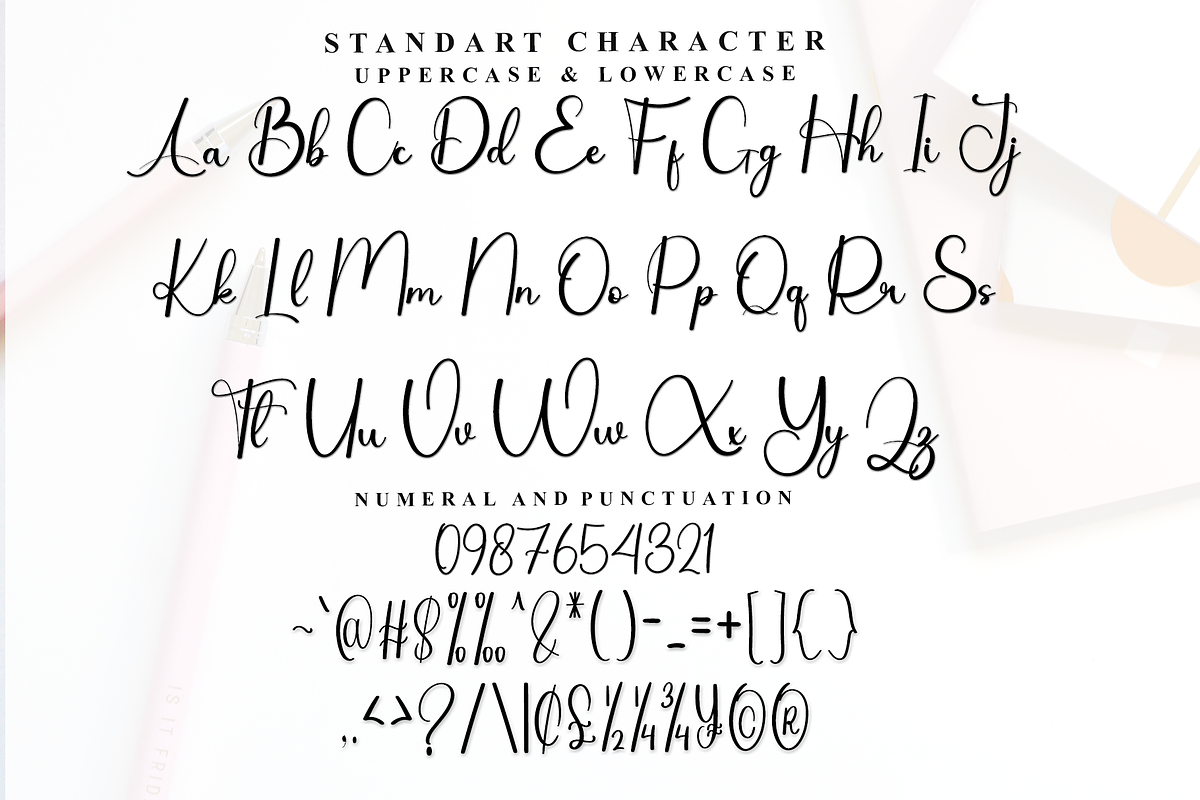 STANDART CHARACTER
UPPERCASE & LOWERCASE
Aa Bb Cc Dd Ee Ff Gg Hh Ii Jj
Kk Ll Mm Nn Oo Pp Qq Rr Ss
Tt Uu Vv Ww Xx Yy Zz
NUMERAL AND PUNCTUATION
0987654321
~`@#$%‰^&*()-_=+[]{}
,.<>?/\|¢£½¼¾¥©®
IS IT FRID